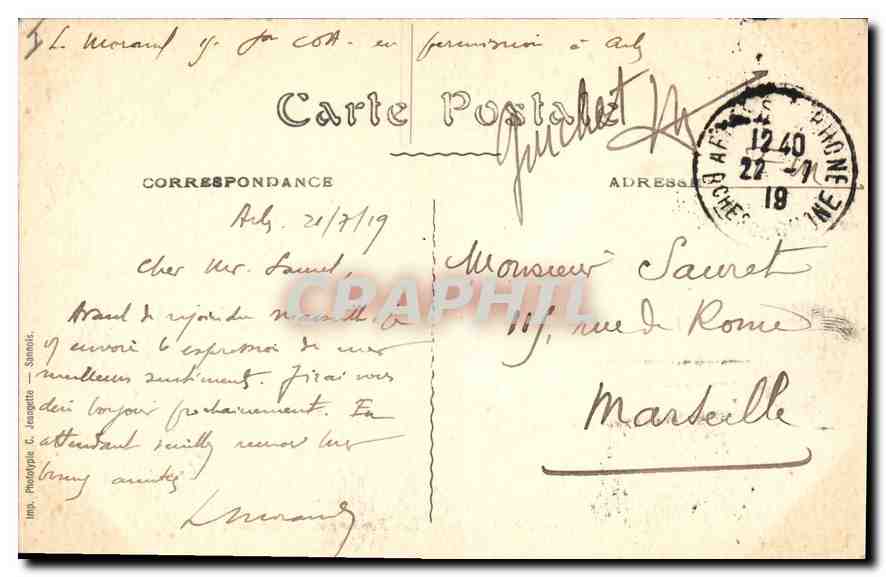 L. Morand en permission à Arles
Carte Postale
Guichet
ARLES - S - RHONE
12 40
22 - 7
19
BCHES DU RHONE
CORRESPONDANCE
ADRESSE
Arles 21/7/19
Cher Mr. Sauret,
Avant de rejoindre Marseille je
envoie l'expression de mes
meilleurs sentiments. J'irai vous
dire bonjour prochainement. En
attendant veuillez recevoir mes
bonnes amitiés
LMorand
Monsieur Sauret
115, rue de Rome
Marseille
Imp. Phototypie C. Jeangette — Sannois.
CPAPHIL